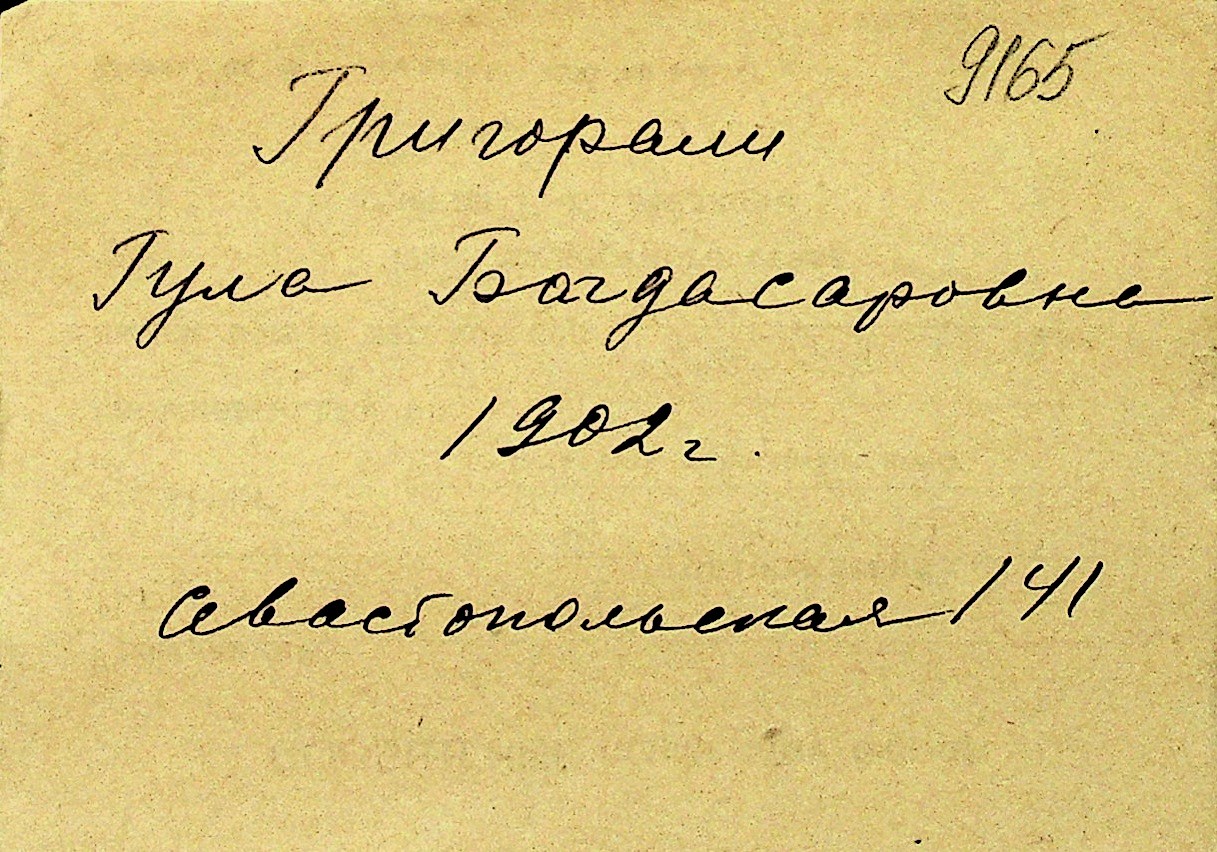 9165
Григорали
Гула Богдасаровна
1902 г.
Севастопольская 141